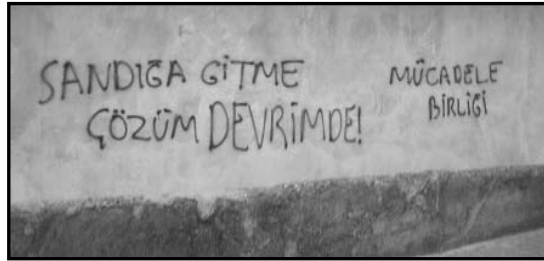 SANDIĞA GİTME
ÇÖZÜM DEVRİMDE!
MÜCADELE
BİRLİĞİ